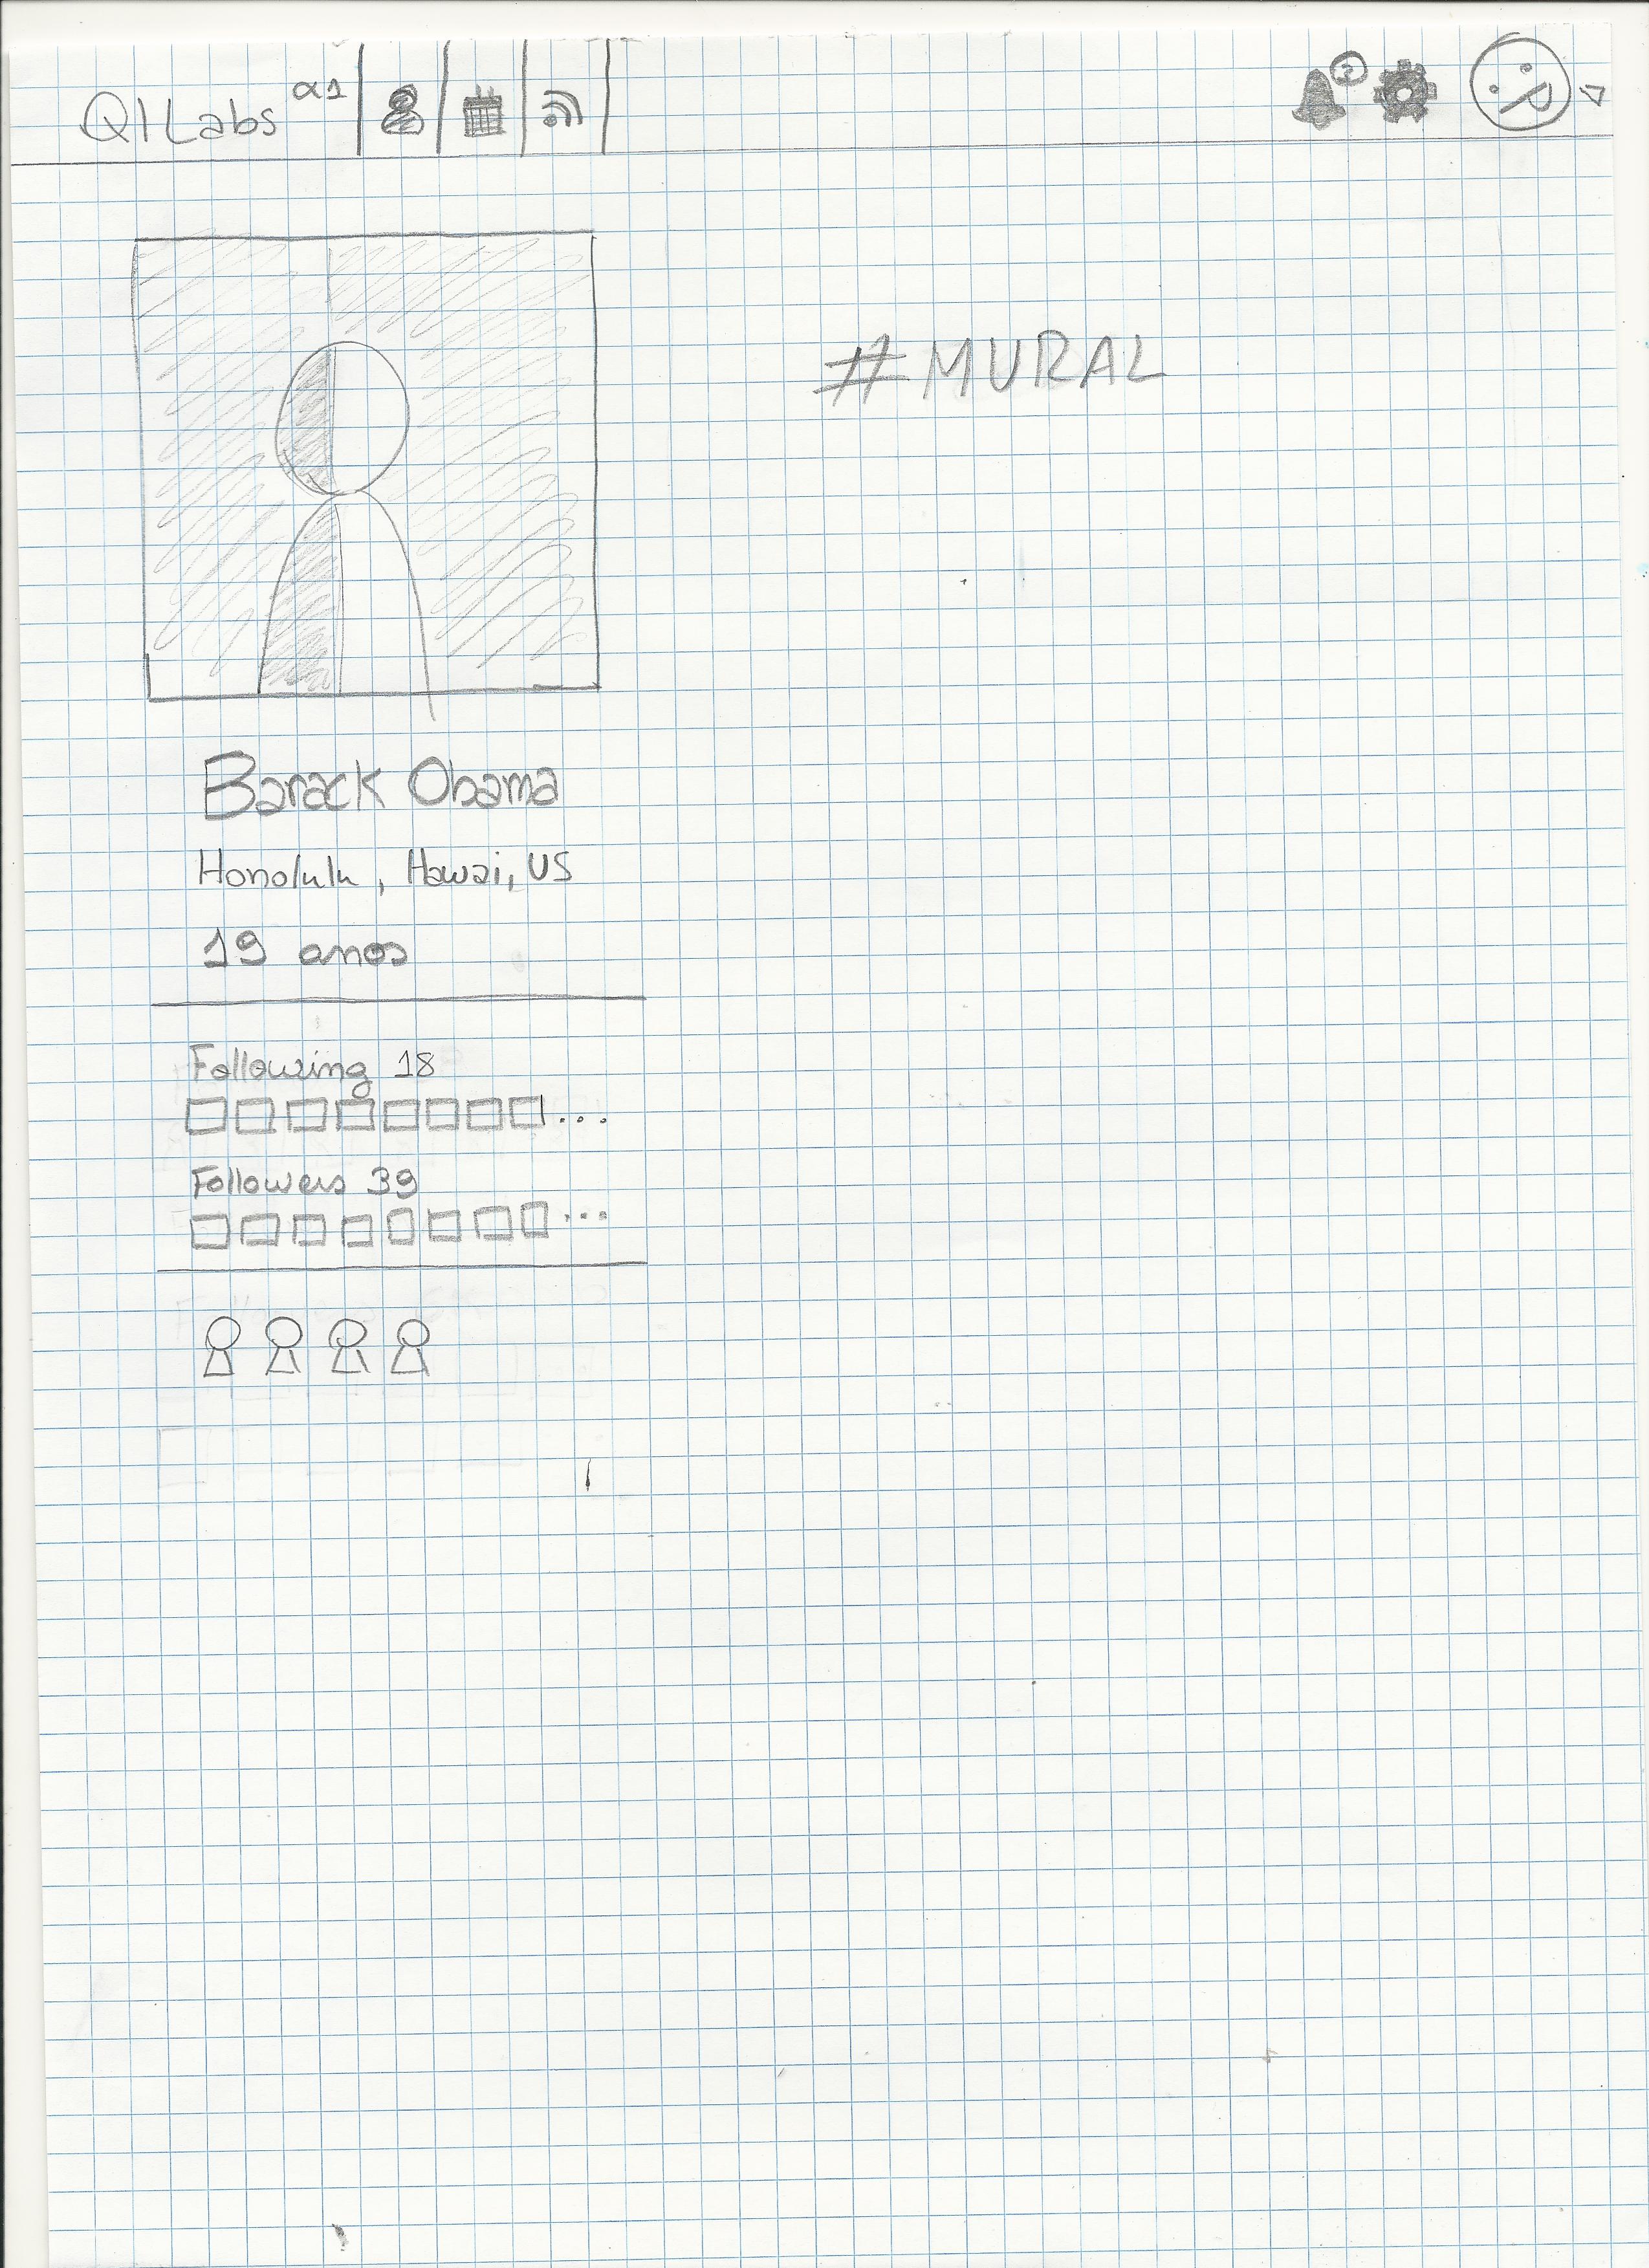 QI Labs α1
#MURAL
Barack Obama
Honolulu, Hawai, US
19 anos
Following 18
...
Followers 39
...